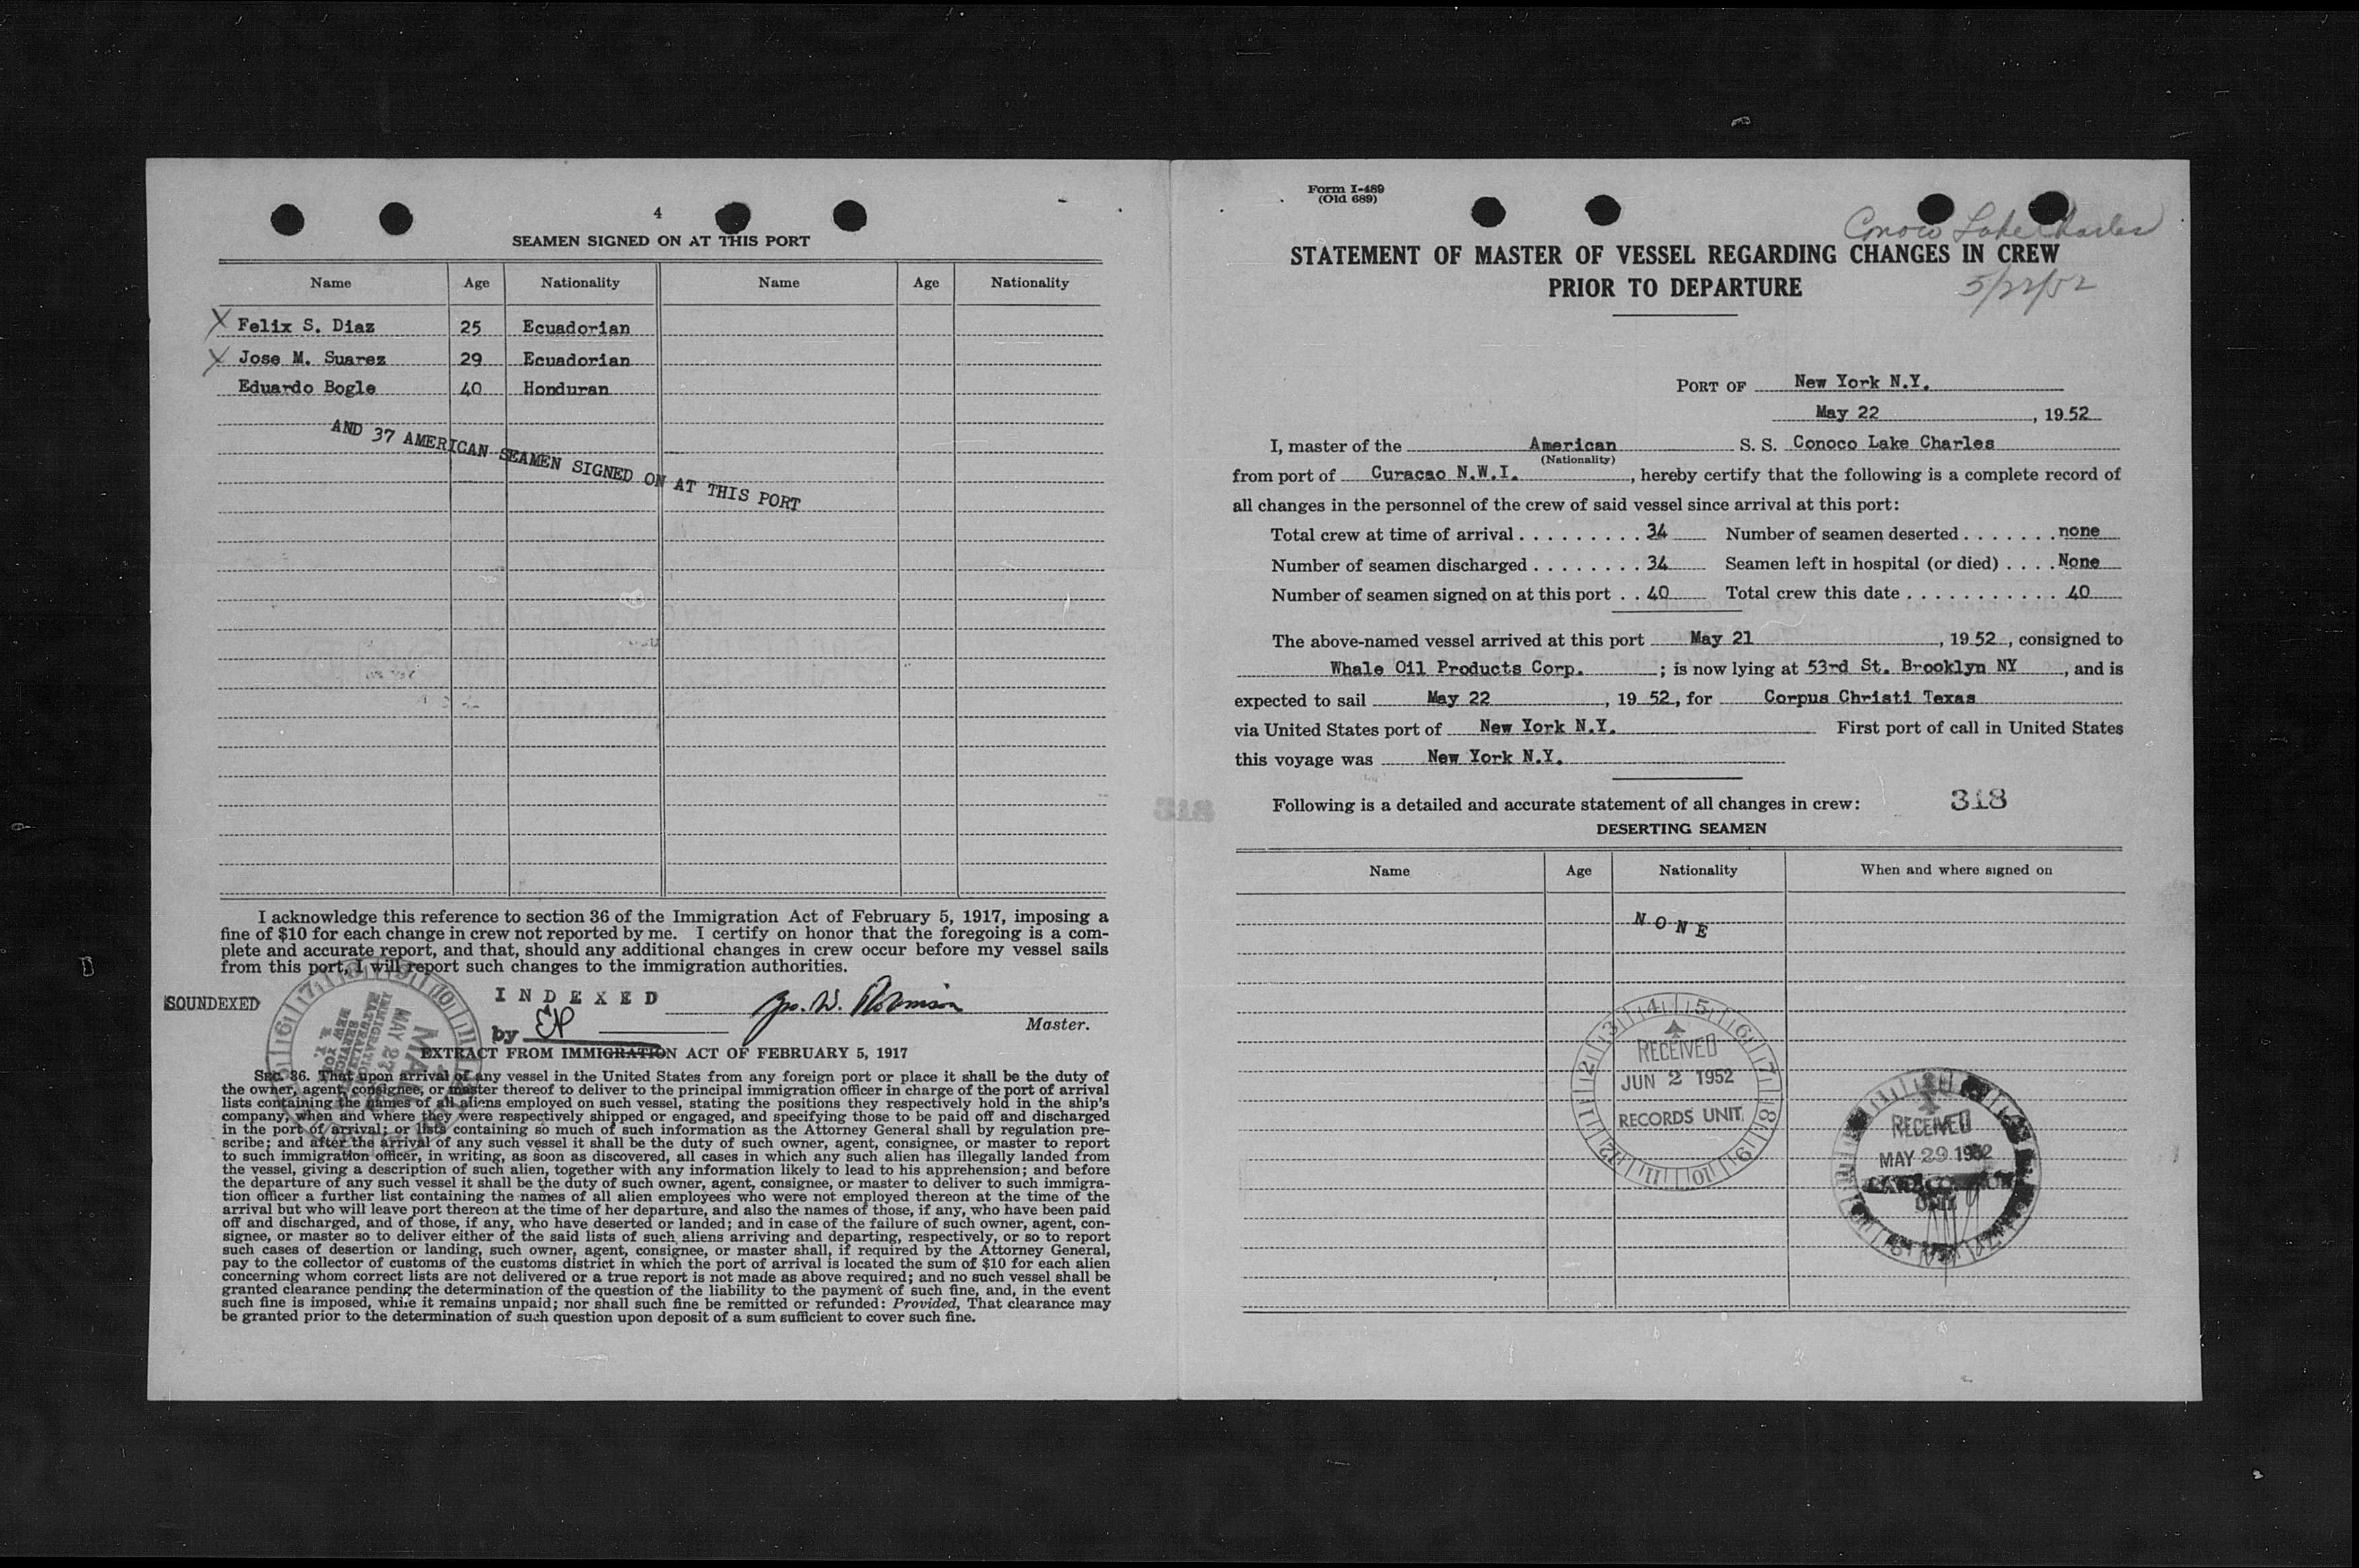 4
SEAMEN SIGNED ON AT THIS PORT
Name Age Nationality Name Age Nationality
X Felix S. Diaz 25 Ecuadorian
X Jose M. Suarez 29 Ecuadorian
Eduardo Bogle 40 Honduran
AND 37 AMERICAN SEAMEN SIGNED ON AT THIS PORT
I acknowledge this reference to section 36 of the Immigration Act of February 5, 1917, imposing a
fine of $10 for each change in crew not reported by me. I certify on honor that the foregoing is a com-
plete and accurate report, and that, should any additional changes in crew occur before my vessel sails
from this port, I will report such changes to the immigration authorities.
SOUNDEXED
INDEXED
by
Geo. W. Robinson
Master.
EXTRACT FROM IMMIGRATION ACT OF FEBRUARY 5, 1917
SEC. 36. That upon arrival of any vessel in the United States from any foreign port or place it shall be the duty of
the owner, agent, consignee, or master thereof to deliver to the principal immigration officer in charge of the port of arrival
lists containing the names of all aliens employed on such vessel, stating the positions they respectively hold in the ship's
company, when and where they were respectively shipped or engaged, and specifying those to be paid off and discharged
in the port of arrival; or lists containing so much of such information as the Attorney General shall by regulation pre-
scribe; and after the arrival of any such vessel it shall be the duty of such owner, agent, consignee, or master to report
to such immigration officer, in writing, as soon as discovered, all cases in which any such alien has illegally landed from
the vessel, giving a description of such alien, together with any information likely to lead to his apprehension; and before
the departure of any such vessel it shall be the duty of such owner, agent, consignee, or master to deliver to such immigra-
tion officer a further list containing the names of all alien employees who were not employed thereon at the time of the
arrival but who will leave port thereon at the time of her departure, and also the names of those, if any, who have been paid
off and discharged, and of those, if any, who have deserted or landed; and in case of the failure of such owner, agent, con-
signee, or master so to deliver either of the said lists of such aliens arriving and departing, respectively, or so to report
such cases of desertion or landing, such owner, agent, consignee, or master shall, if required by the Attorney General,
pay to the collector of customs of the customs district in which the port of arrival is located the sum of $10 for each alien
concerning whom correct lists are not delivered or a true report is not made as above required; and no such vessel shall be
granted clearance pending the determination of the question of the liability to the payment of such fine, and, in the event
such fine is imposed, while it remains unpaid; nor shall such fine be remitted or refunded: Provided, That clearance may
be granted prior to the determination of such question upon deposit of a sum sufficient to cover such fine.
Form I-489
(Old 689)
Conoco Lake Charles
STATEMENT OF MASTER OF VESSEL REGARDING CHANGES IN CREW
PRIOR TO DEPARTURE
5/22/52
PORT OF New York N.Y.
May 22, 1952
I, master of the American S. S. Conoco Lake Charles
(Nationality)
from port of Curacao N.W.I., hereby certify that the following is a complete record of
all changes in the personnel of the crew of said vessel since arrival at this port:
Total crew at time of arrival . . . . . . . . . 34 Number of seamen deserted . . . . . . . none
Number of seamen discharged . . . . . . . . 34 Seamen left in hospital (or died) . . . . None
Number of seamen signed on at this port . . 40 Total crew this date . . . . . . . . . . . . 40
The above-named vessel arrived at this port May 21, 1952, consigned to
Whale Oil Products Corp. ; is now lying at 53rd St. Brooklyn NY, and is
expected to sail May 22, 1952, for Corpus Christi Texas
via United States port of New York N.Y. First port of call in United States
this voyage was New York N.Y.
Following is a detailed and accurate statement of all changes in crew: 318
DESERTING SEAMEN
Name Age Nationality When and where signed on
NONE
RECEIVED
JUN 2 1952
RECORDS UNIT
RECEIVED
MAY 29 1952
UNIT